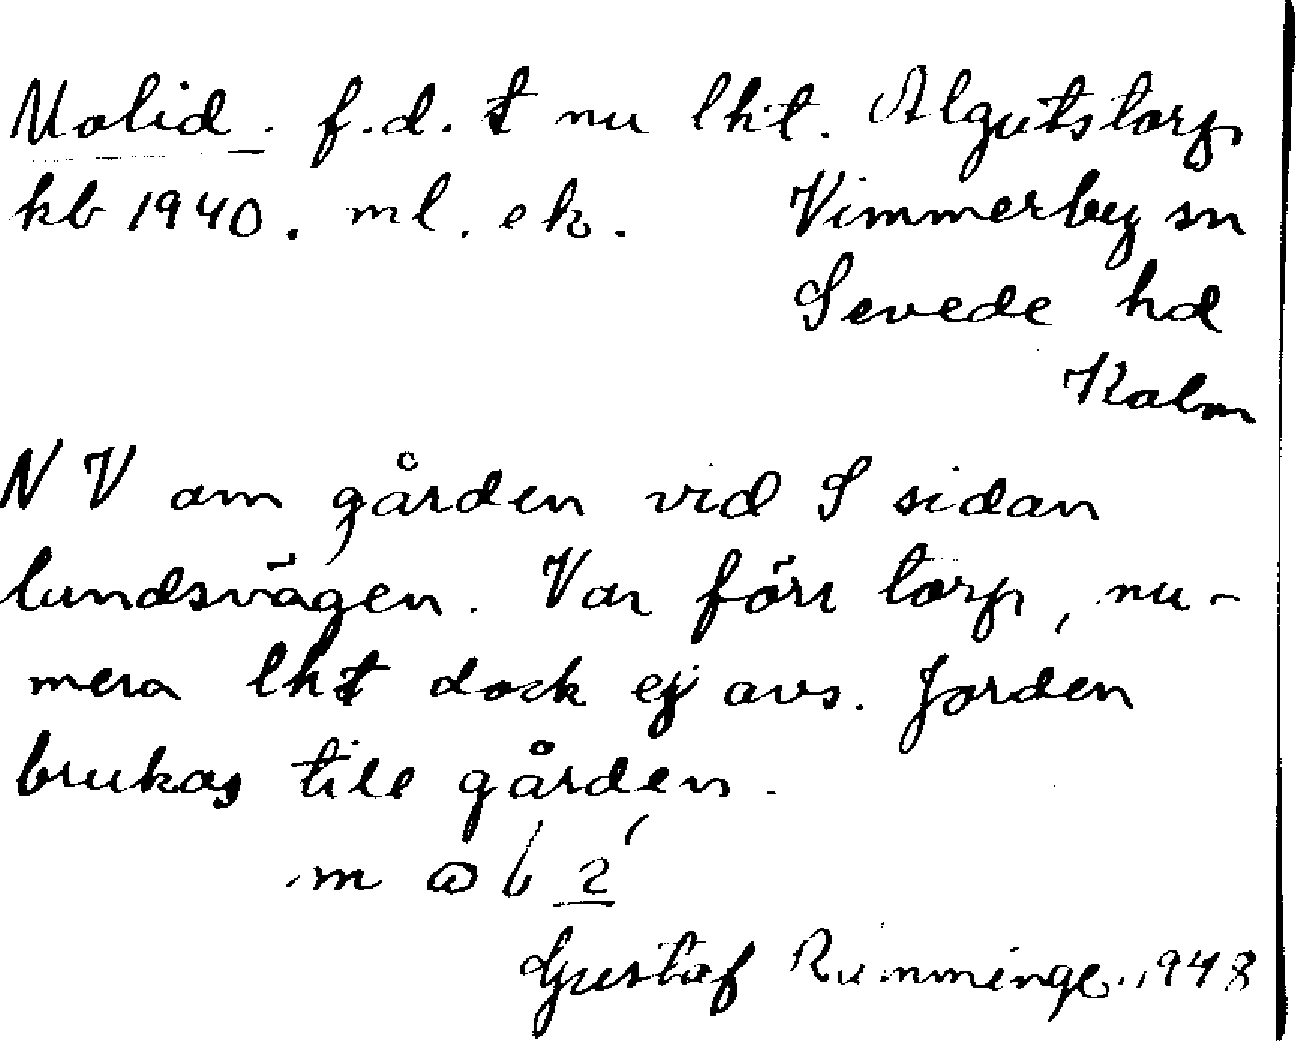 Molid. f.d. t nu lht. Algutstorp
kb 1940. ml. ek. Vimmerby sn
Sevede hd
Kalm
N V om gården vid S sidan
landsvägen. Var förr torp, nu-
mera lht dock ej avs. Jorden
brukas till gården.
m
Gustaf Rumminge 1948